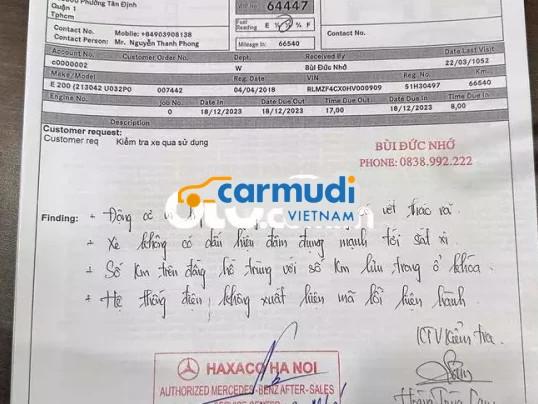 Phường Tân Định
Quận 1
Tphcm
WIP No. 64447
Fuel Reading E ¼ ½ ¾ F
Contact No. Mobile: +84903908138
Contact Person: Mr. Nguyễn Thanh Phong
Contact No.
Mileage In: 66540
Account No. Customer Order No. Dept. Received By Date Last Visit
c0000002 W Bùi Đức Nhớ 22/03/1052
Make/Model Reg. Date VIN Reg. No. Km
E 200 (213042 U032P0 007442 04/04/2018 RLMZF4CX0HV000909 51H30497 66540
Engine No. Job No. Date In Date Out Time Due Out Date In Time Due In
0 18/12/2023 18/12/2023 17,00 18/12/2023 8,00
Description
Customer request:
Customer req Kiểm tra xe qua sử dụng
BÙI ĐỨC NHỚ
PHONE: 0838.992.222
carmudi
VIETNAM
Finding: + Động cơ vết tháo rã
+ Xe không có dấu hiệu đâm đụng mạnh tới sát xi
+ Số Km trên đồng hồ trùng với số Km lưu trong ổ khóa
+ Hệ thống điện, không xuất hiện mã lỗi hiện hành
KTV Kiểm tra
HAXACO HA NOI
AUTHORIZED MERCEDES-BENZ AFTER-SALES
SERVICE CENTER